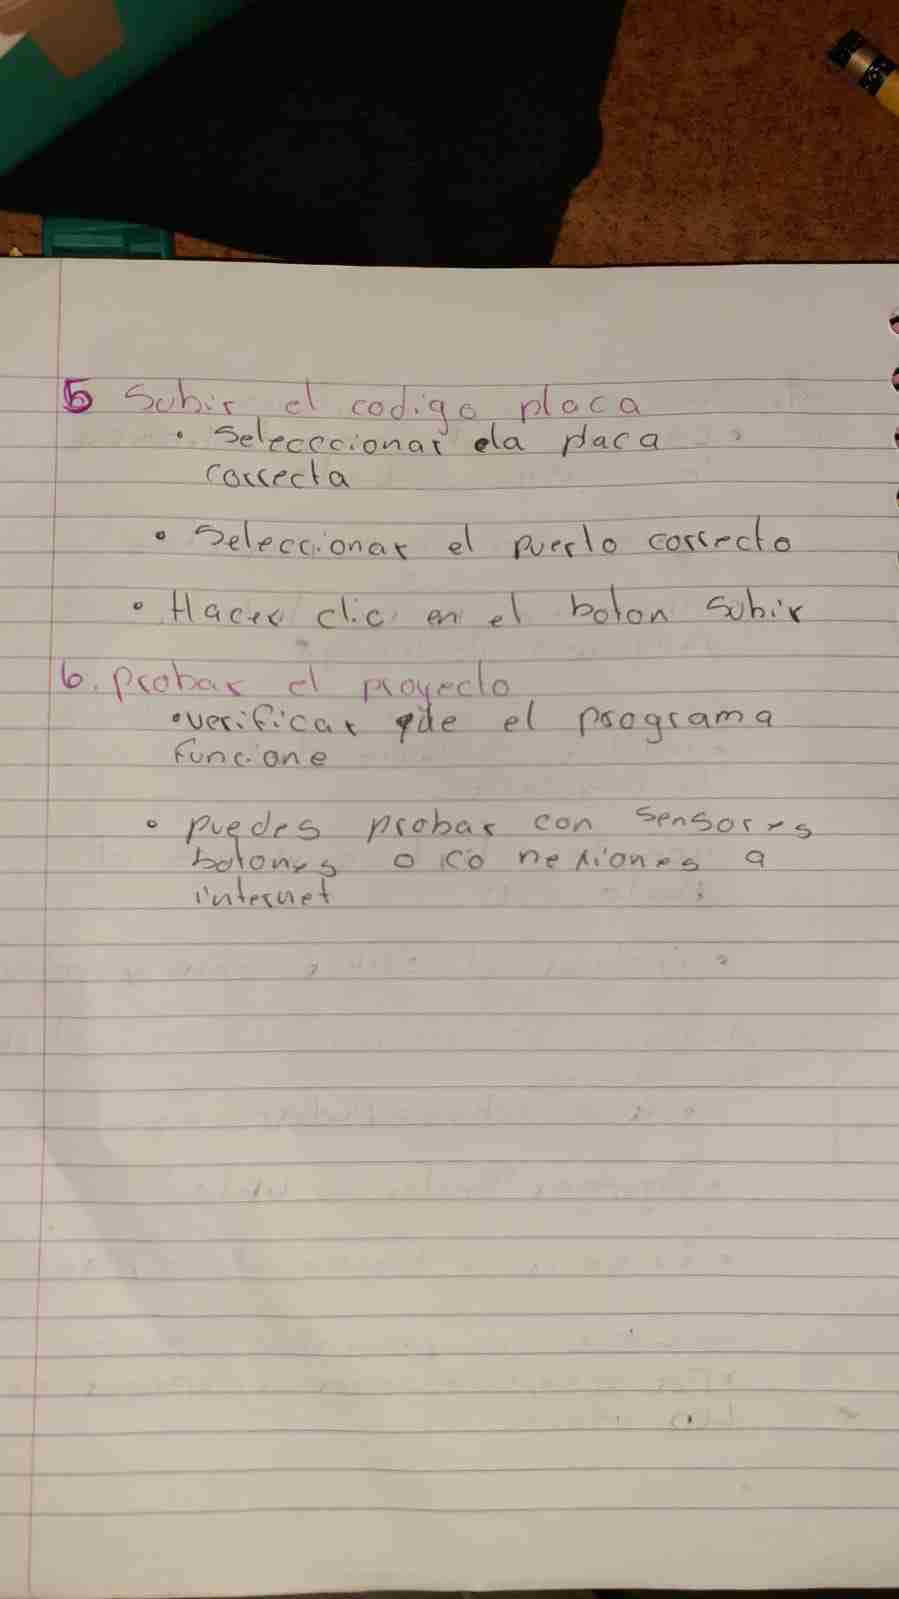 5 Subir el codigo placa
• Selecccionar la placa
correcta
• Seleccionar el puerto correcto
• Hacer clic en el boton subir
6. probar el proyecto
• verificar que el programa
funcione
• puedes probar con sensores
botones o co nexiones a
internet